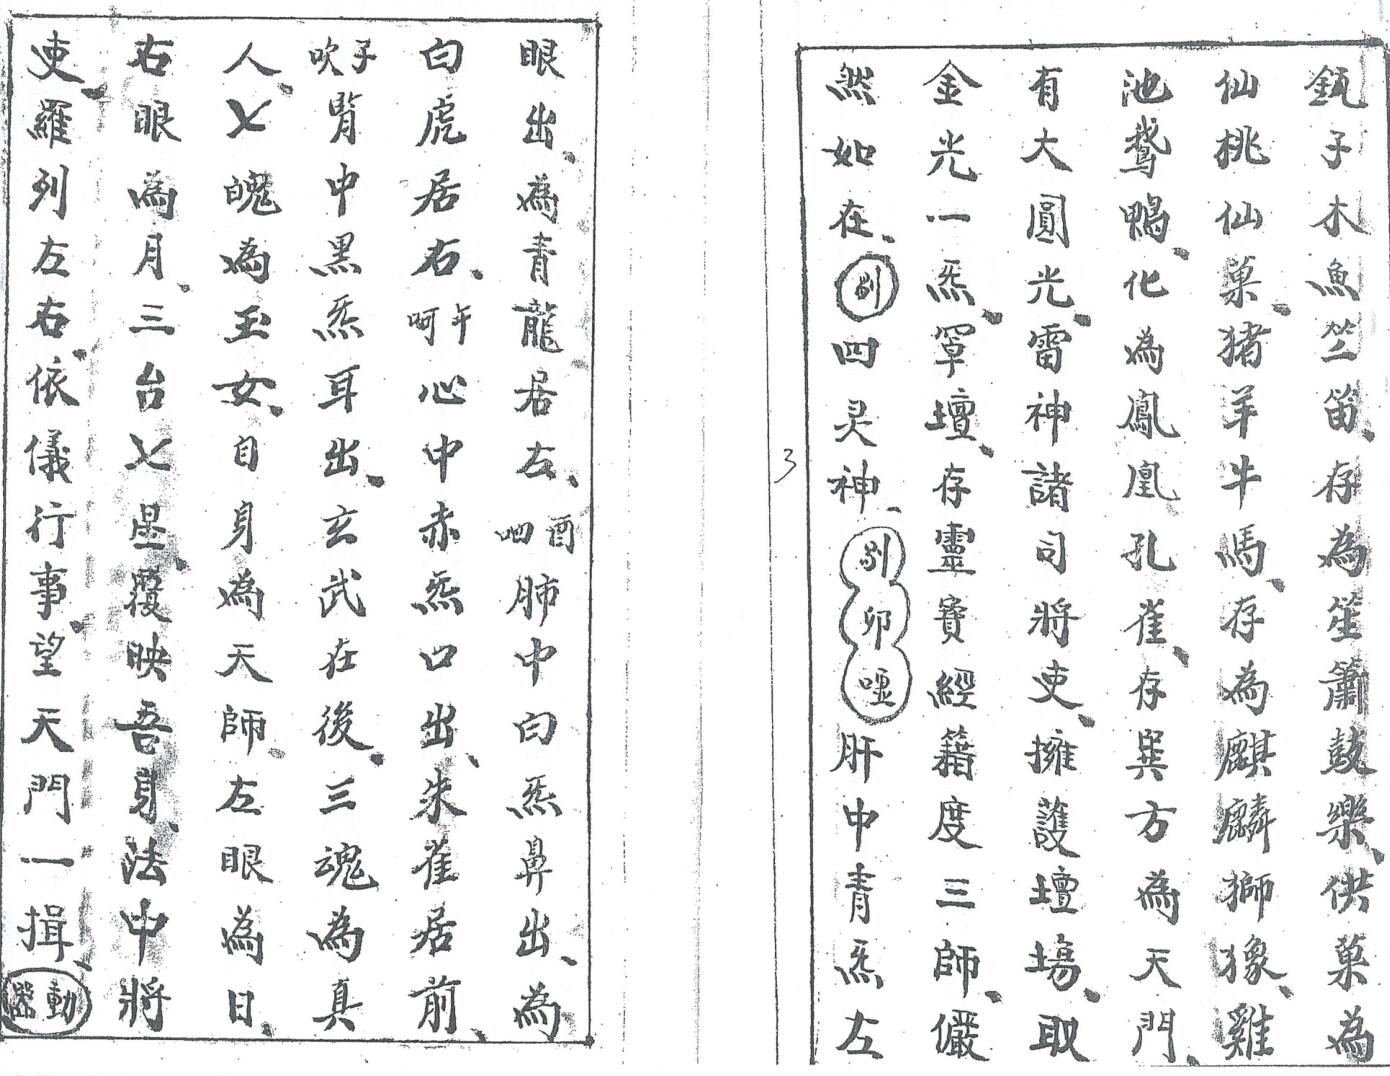 鈺子木魚竺笛、存為笙簫鼓樂、供菓為
仙桃仙菓、猪羊牛馬、存為麒麟獅𧰼、雞
池鵞鴨、化為鳳凰孔雀、存巽方為天門、
有大圓光、雷神諸司將吏、擁護壇場、取
金光一炁、罩壇、存靈寶經籍度三師、儼
然如在、剔四灵神、剔卯噓肝中青炁左
3
眼出、為青龍居左、酉呬肺中白炁鼻出、為
白虎居右、午呵心中赤炁口出、朱雀居前、
子吹腎中黑炁耳出、玄武在後、三魂為真
人、七魄為玉女、自身為天師、左眼為日、
右眼為月、三台七星、覆映吾身、法中將
吏、羅列左右、依儀行事、望天門一揖、動器